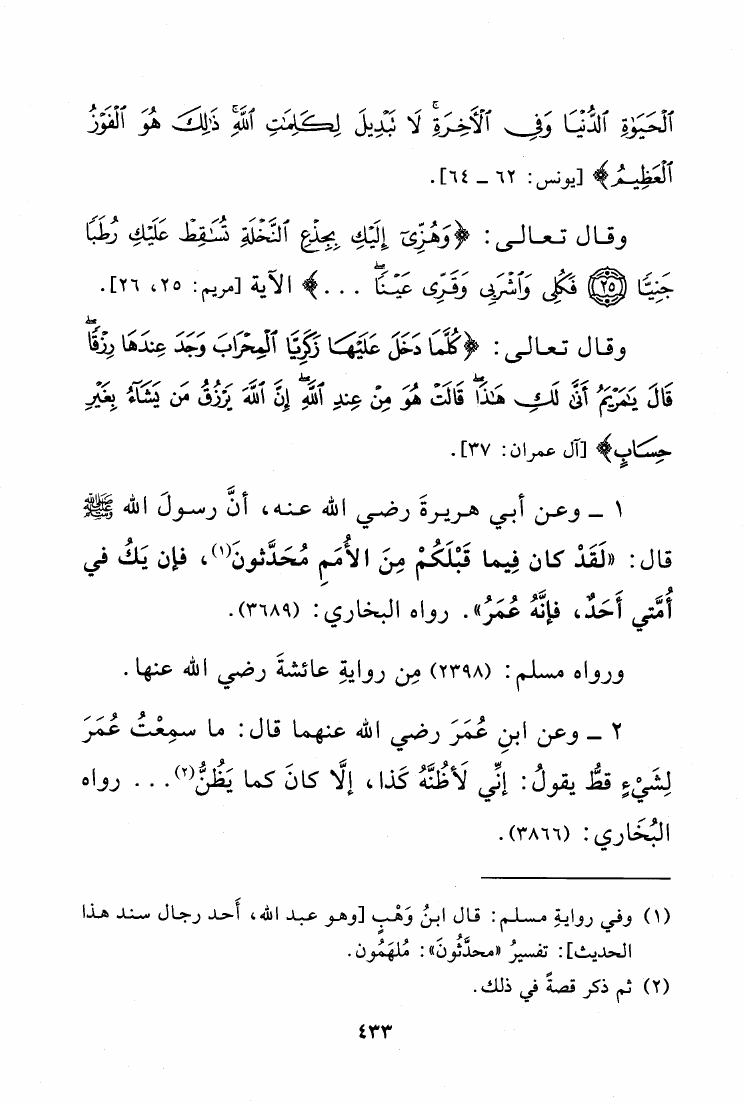 ٱلْحَيَوٰةِ ٱلدُّنْيَا وَفِى ٱلْأَخِرَةِۚ لَا تَبْدِيلَ لِكَلِمَٰتِ ٱللَّهِۚ ذَٰلِكَ هُوَ ٱلْفَوْزُ
ٱلْعَظِيمُ﴾ [يونس: ٦٢ ـ ٦٤].
وقـال تـعـالـى: ﴿وَهُزِّىٓ إِلَيْكِ بِجِذْعِ ٱلنَّخْلَةِ تُسَٰقِطْ عَلَيْكِ رُطَبًا
جَنِيًّا ۝٢٥ فَكُلِى وَٱشْرَبِى وَقَرِّى عَيْنًاۖ ...﴾ الآية [مريم: ٢٥، ٢٦].
وقـال تـعـالـى: ﴿كُلَّمَا دَخَلَ عَلَيْهَا زَكَرِيَّا ٱلْمِحْرَابَ وَجَدَ عِندَهَا رِزْقًاۖ
قَالَ يَٰمَرْيَمُ أَنَّىٰ لَكِ هَٰذَاۖ قَالَتْ هُوَ مِنْ عِندِ ٱللَّهِۖ إِنَّ ٱللَّهَ يَرْزُقُ مَن يَشَآءُ بِغَيْرِ
حِسَابٍ﴾ [آل عمران: ٣٧].
١ ـ وعـن أبـي هـريـرةَ رضـي الله عـنـه، أنَّ رسـولَ الله ﷺ
قال: «لَقَدْ كان فِيما قَبْلَكُمْ مِنَ الأُمَمِ مُحَدَّثونَ(١)، فإن يَكُ في
أُمَّتي أَحَدٌ، فإنَّهُ عُمَرُ». رواه البخاري: (٣٦٨٩).
ورواه مسلم: (٢٣٩٨) مِن روايةِ عائشةَ رضي الله عنها.
٢ ـ وعـن ابنِ عُمَرَ رضي الله عنهما قال: ما سمِعْتُ عُمَرَ
لِشَيْءٍ قطُّ يقولُ: إنِّي لَأظُنُّهُ كَذا، إلَّا كانَ كما يَظُنُّ(٢)... رواه
البُخَاري: (٣٨٦٦).
(١) وفي روايةِ مسلم: قال ابنُ وَهْبٍ [وهو عبد الله، أحد رجال سند هذا
الحديث]: تفسيرُ «محدَّثُونَ»: مُلهَمُون.
(٢) ثم ذكر قصةً في ذلك.
٤٣٣